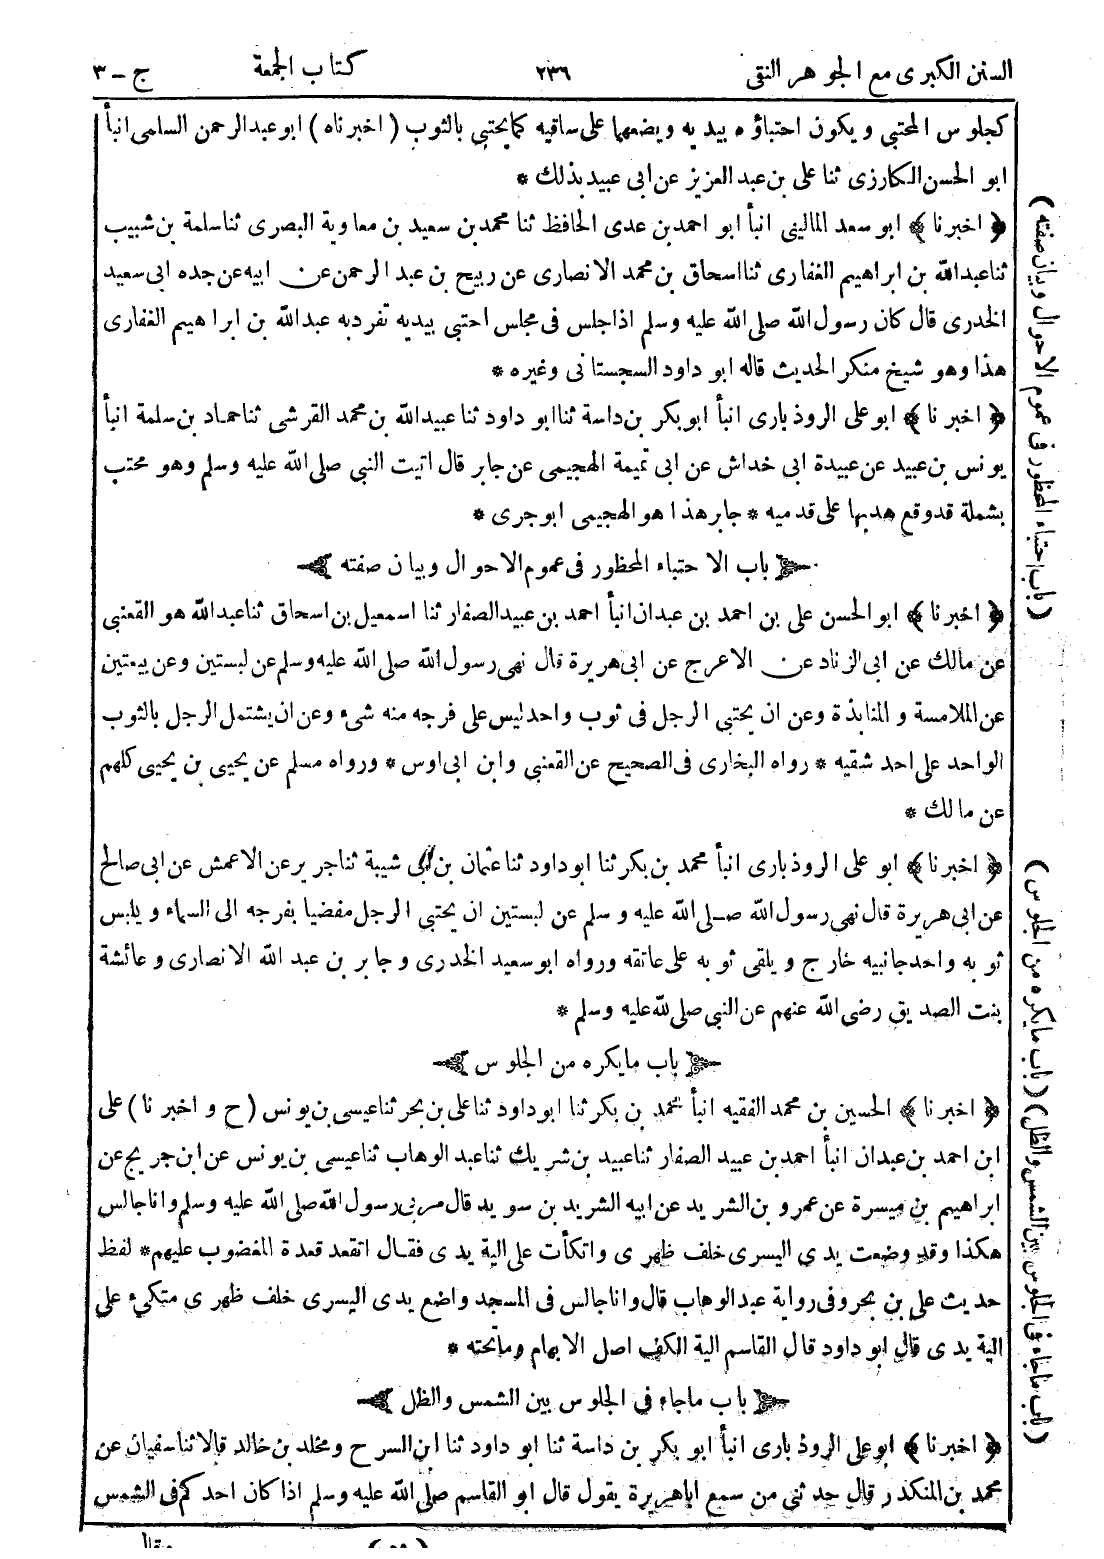 السنن الكبرى مع الجوهر النقى ٢٣٦ كتاب الجمعة ج - ٣
كجلوس المحتبى ويكون احتباؤه بيديه ويضعها على ساقيه كما يحتبى بالثوب ( اخبرناه ) ابو عبد الرحمن السلمى انبأ
ابو الحسن الكارزى ثنا على بن عبد العزيز عن ابى عبيد بذلك *
﴿ اخبرنا ﴾ ابو سعد المالينى انبأ ابو احمد بن عدى الحافظ ثنا محمد بن سعيد بن معاوية البصرى ثنا سلمة بن شبيب
ثنا عبد الله بن ابراهيم الغفارى ثنا اسحاق بن محمد الانصارى عن ربيح بن عبد الرحمن عن ابيه عن جده ابى سعيد
الخدرى قال كان رسول الله صلى الله عليه وسلم اذا جلس فى مجلس احتبى بيديه تفرد به عبد الله بن ابراهيم الغفارى
هذا وهو شيخ منكر الحديث قاله ابو داود السجستانى وغيره *
﴿ اخبرنا ﴾ ابو على الروذبارى انبأ ابو بكر بن داسة ثنا ابو داود ثنا عبيد الله بن محمد القرشى ثنا حماد بن سلمة انبأ
يونس بن عبيد عن عبيدة ابى خداش عن ابى تميمة الهجيمى عن جابر قال اتيت النبى صلى الله عليه وسلم وهو محتب
بشملة قد وقع هدبها على قدميه * جابر هذا هو الهجيمى ابو جرى *
باب الاحتباء المحظور فى عموم الاحوال وبيان صفته
﴿ اخبرنا ﴾ ابو الحسن على بن احمد بن عبدان انبأ احمد بن عبيد الصفار ثنا اسمعيل بن اسحاق ثنا عبد الله هو القعنبى
عن مالك عن ابى الزناد عن الاعرج عن ابى هريرة قال نهى رسول الله صلى الله عليه وسلم عن لبستين وعن بيعتين
عن الملامسة والمنابذة وعن ان يحتبى الرجل فى ثوب واحد ليس على فرجه منه شىء وعن ان يشتمل الرجل بالثوب
الواحد على احد شقيه * رواه البخارى فى الصحيح عن القعنبى وابن ابى اوس * ورواه مسلم عن يحيى بن يحيى كلهم
عن مالك *
﴿ اخبرنا ﴾ ابو على الروذبارى انبأ محمد بن بكر ثنا ابو داود ثنا عثمان بن ابى شيبة ثنا جرير عن الاعمش عن ابى صالح
عن ابى هريرة قال نهى رسول الله صلى الله عليه وسلم عن لبستين ان يحتبى الرجل مفضيا بفرجه الى السماء ويلبس
ثوبه واحد جانبيه خارج ويلقى ثوبه على عاتقه ورواه ابو سعيد الخدرى وجابر بن عبد الله الانصارى وعائشة
بنت الصديق رضى الله عنهم عن النبى صلى الله عليه وسلم *
باب ما يكره من الجلوس
﴿ اخبرنا ﴾ الحسين بن محمد الفقيه انبأ محمد بن بكر ثنا ابو داود ثنا على بن بحر ثنا عيسى بن يونس ( ح واخبرنا ) على
ابن احمد بن عبدان انبأ احمد بن عبيد الصفار ثنا عبيد بن شريك ثنا عبد الوهاب ثنا عيسى بن يونس عن ابن جريج عن
ابراهيم بن ميسرة عن عمرو بن الشريد عن ابيه الشريد بن سويد قال مر بى رسول الله صلى الله عليه وسلم وانا جالس
هكذا وقد وضعت يدى اليسرى خلف ظهرى واتكأت على الية يدى فقال اتقعد قعدة المغضوب عليهم * لفظ
حديث على بن بحر وفى رواية عبد الوهاب قال وانا جالس فى المسجد واضع يدى اليسرى خلف ظهرى متكىء على
الية يدى قال ابو داود قال القاسم الية الكف اصل الابهام وما تحته *
باب ماجاء فى الجلوس بين الشمس والظل
﴿ اخبرنا ﴾ ابو على الروذبارى انبأ ابو بكر بن داسة ثنا ابو داود ثنا ابن السرح ومخلد بن خالد قالا ثنا سفيان عن
محمد بن المنكدر قال حدثنى من سمع اباهريرة يقول قال ابو القاسم صلى الله عليه وسلم اذا كان احدكم فى الشمس
( باب احتباء المحظور فى عموم الاحوال وبيان صفته )
( باب ما يكره من الجلوس )
( باب ماجاء فى الجلوس بين الشمس والظل )